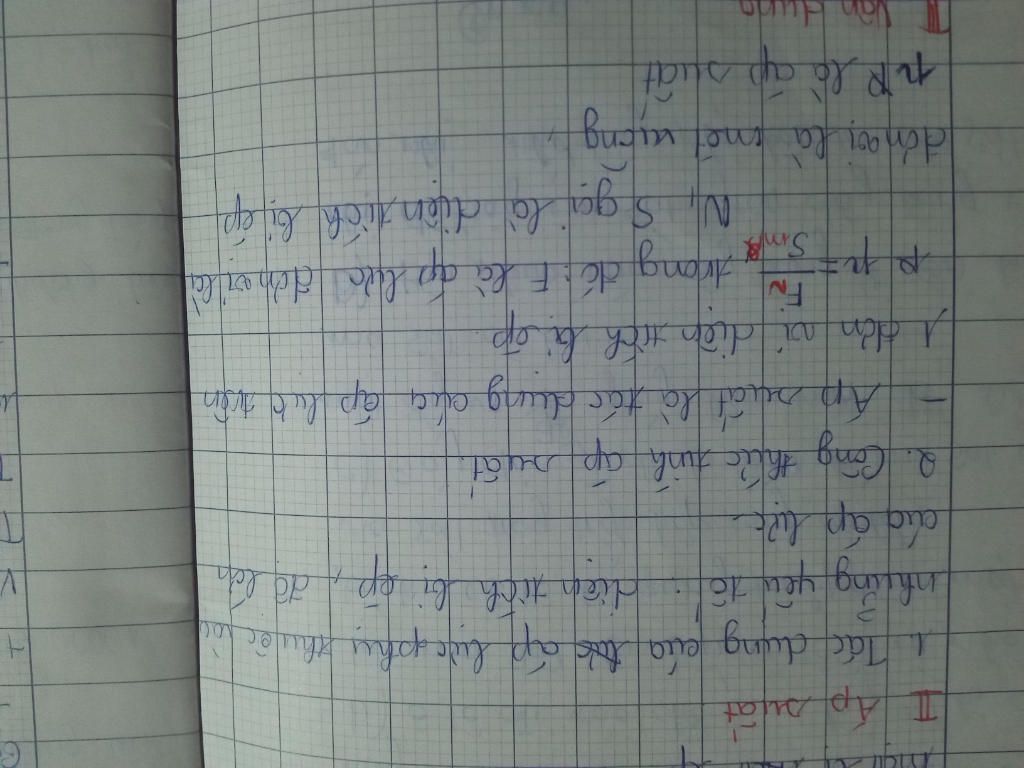 II Áp suất
1. Tác dụng của áp lực phụ thuộc vào
những yếu tố: diện tích bị ép, độ lớn
của áp lực.
2. Công thức tính áp suất.
- Áp suất là tác dụng của áp lực trên
1 đơn vị diện tích bị ép.
p = F N / S m² trong đó: F là áp lực đơn vị là
N, S gọi là diện tích bị ép
đơn vị là mét vuông
p là áp suất
III Vận dụng